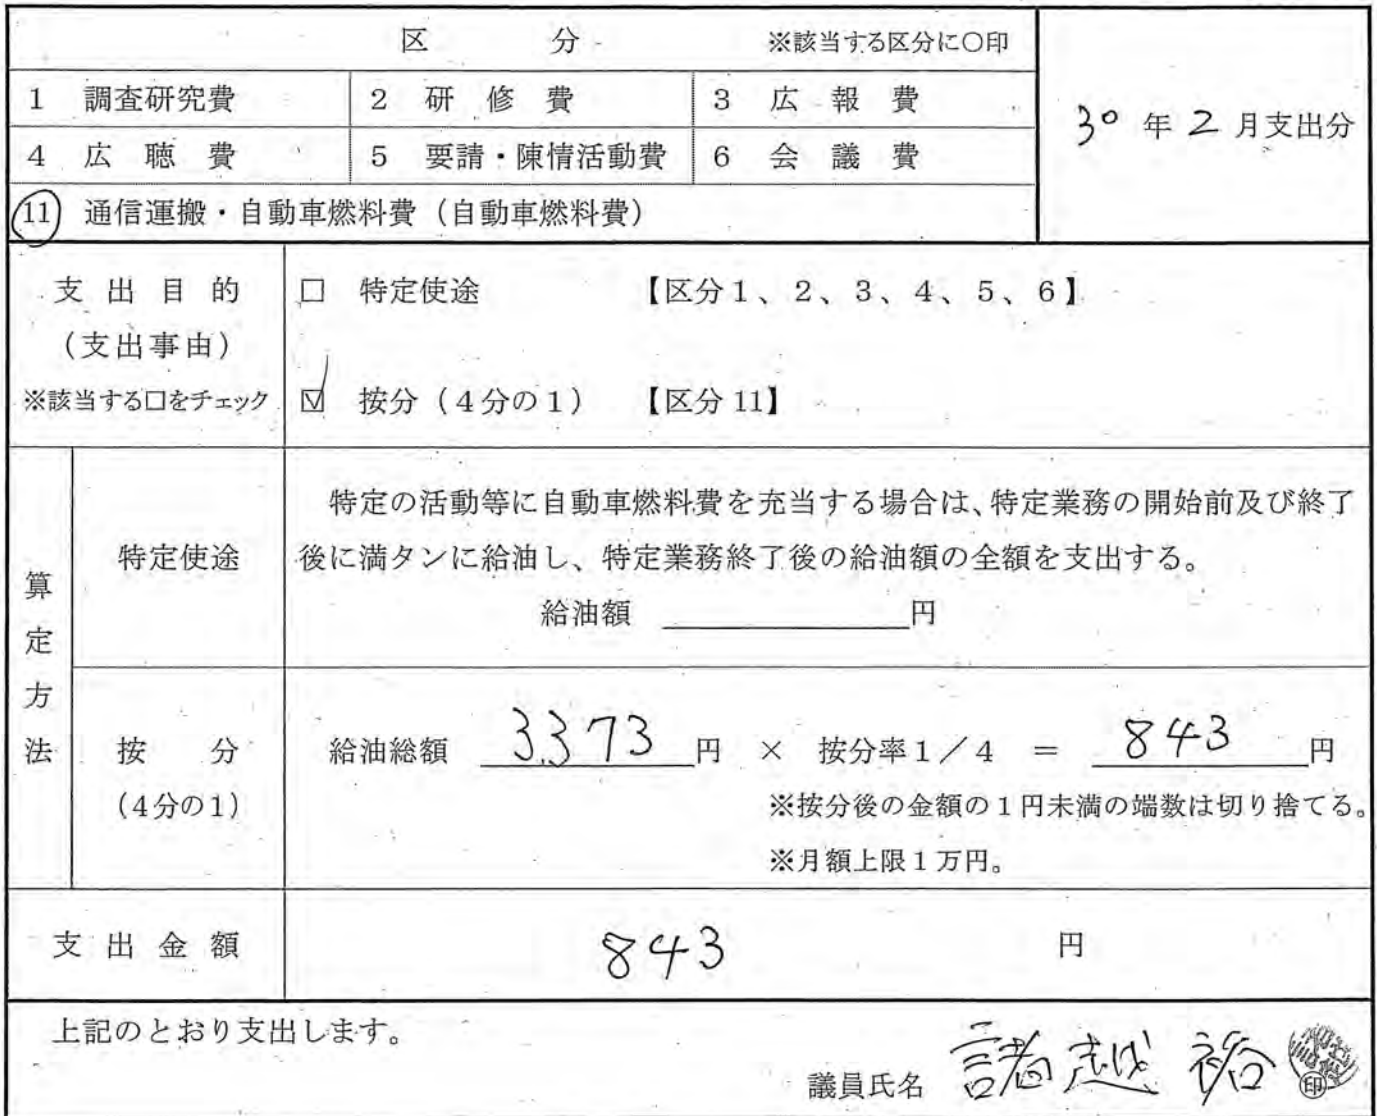 区 分 ※該当する区分に〇印
1 調査研究費 2 研修費 3 広報費
30年2月支出分
4 広聴費 5 要請・陳情活動費 6 会議費
11 通信運搬・自動車燃料費(自動車燃料費)
支出目的
(支出事由)
※該当する口をチェック
□ 特定使途 【区分1、2、3、4、5、6】
☑ 按分(4分の1) 【区分11】
算定方法
特定使途
特定の活動等に自動車燃料費を充当する場合は、特定業務の開始前及び終了
後に満タンに給油し、特定業務終了後の給油額の全額を支出する。
給油額 円
按分
(4分の1)
給油総額 3,373 円 × 按分率1/4 = 843 円
※按分後の金額の1円未満の端数は切り捨てる。
※月額上限1万円。
支出金額 843 円
上記のとおり支出します。
議員氏名 諸越 裕 印